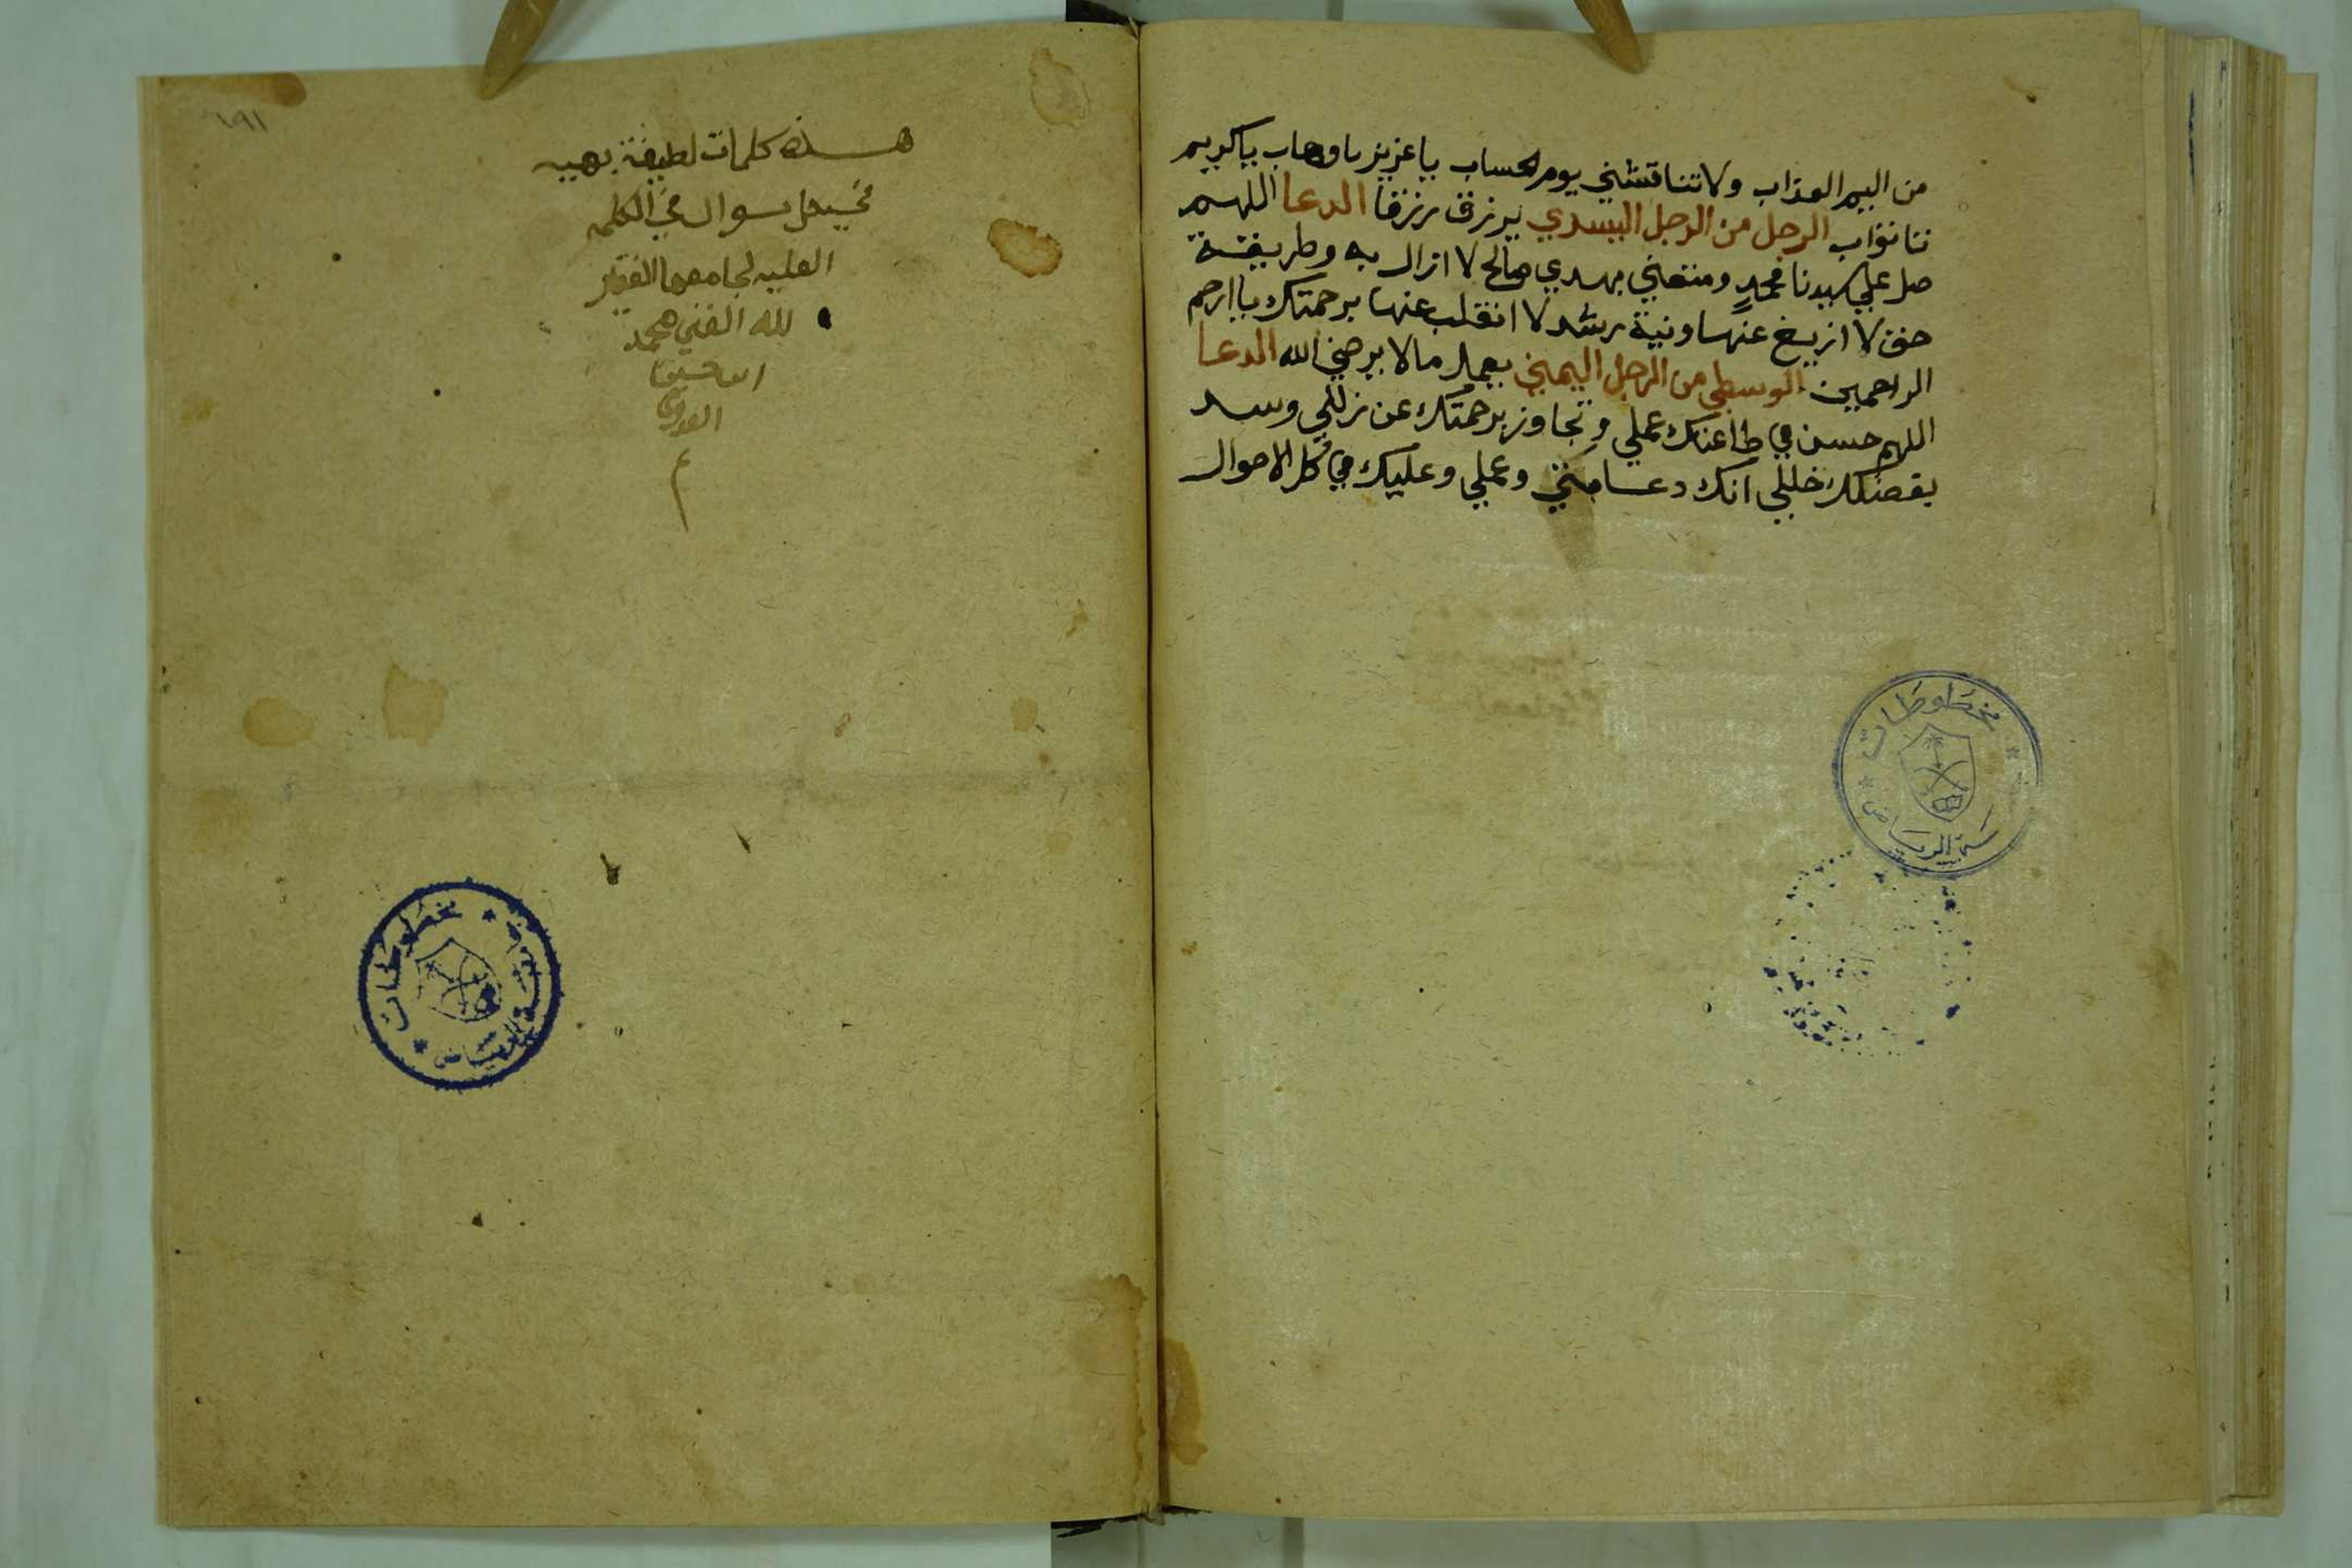 من اليم العذاب ولا تناقشني يوم الحساب يا عزيز يا وهاب يا كريم
نا تواب الرجل من الرجل اليسري يرزق رزقا الدعا اللهم
صل علي سيدنا محمد ومتعني بهدي صالح لا ازال به وطريقة
حق لا ازيغ عنها ونية رشد لا انقلب عنها برحمتك يا ارحم
الراحمين الوسطي من الرجل اليمني يعمل ما لا يرضي الله الدعا
اللهم حسن في طاعتك عملي وتجاوز برحمتك عن زللي وسد
بفضلك خللي انك دعا مني وعملي وعليك في كل الاحوال
مخطوطات
الرياض
١٩١
هذه كلمات لطيفة بهيه
في حل سوال في الكلمه
العليه لجامعها الفقير
لله الغني محمد
ابن حسين
م
مخطوطات
الرياض